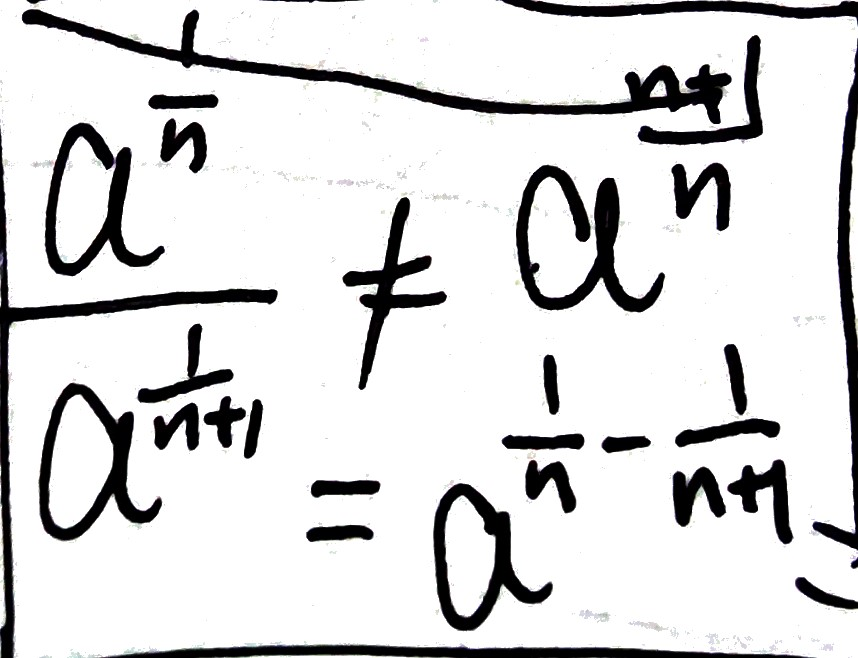 a^{1/n} / a^{1/(n+1)} ≠ a^{(n+1)/n}
= a^{1/n - 1/(n+1)} =